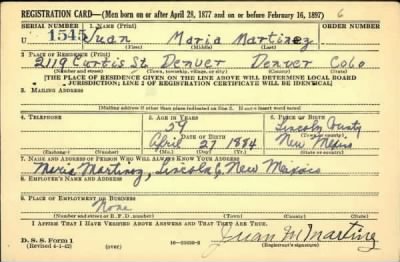 REGISTRATION CARD—(Men born on or after April 28, 1877 and on or before February 16, 1897) 6
SERIAL NUMBER 1. NAME (Print) ORDER NUMBER
U 1545 Juan Maria Martinez
(First) (Middle) (Last)
2. PLACE OF RESIDENCE (Print)
2119 Curtis St. Denver Denver Colo
(Number and street) (Town, township, village, or city) (County) (State)
[THE PLACE OF RESIDENCE GIVEN ON THE LINE ABOVE WILL DETERMINE LOCAL BOARD
JURISDICTION; LINE 2 OF REGISTRATION CERTIFICATE WILL BE IDENTICAL]
3. MAILING ADDRESS
[Mailing address if other than place indicated on line 2. If same insert word same]
4. TELEPHONE 5. AGE IN YEARS 6. PLACE OF BIRTH
Lincoln
(Town or county)
DATE OF BIRTH
April 27 1884 New Mexico
(Exchange) (Number) (Mo.) (Day) (Yr.) (State or country)
7. NAME AND ADDRESS OF PERSON WHO WILL ALWAYS KNOW YOUR ADDRESS
Maria Martinez, Lincoln New Mexico
8. EMPLOYER'S NAME AND ADDRESS
9. PLACE OF EMPLOYMENT OR BUSINESS
None
(Number and street or R. F. D. number) (Town) (County) (State)
I AFFIRM THAT I HAVE VERIFIED ABOVE ANSWERS AND THAT THEY ARE TRUE.
D. S. S. Form 1
(Revised 4-1-42) (over) Juan M Martinez
(Registrant's signature)